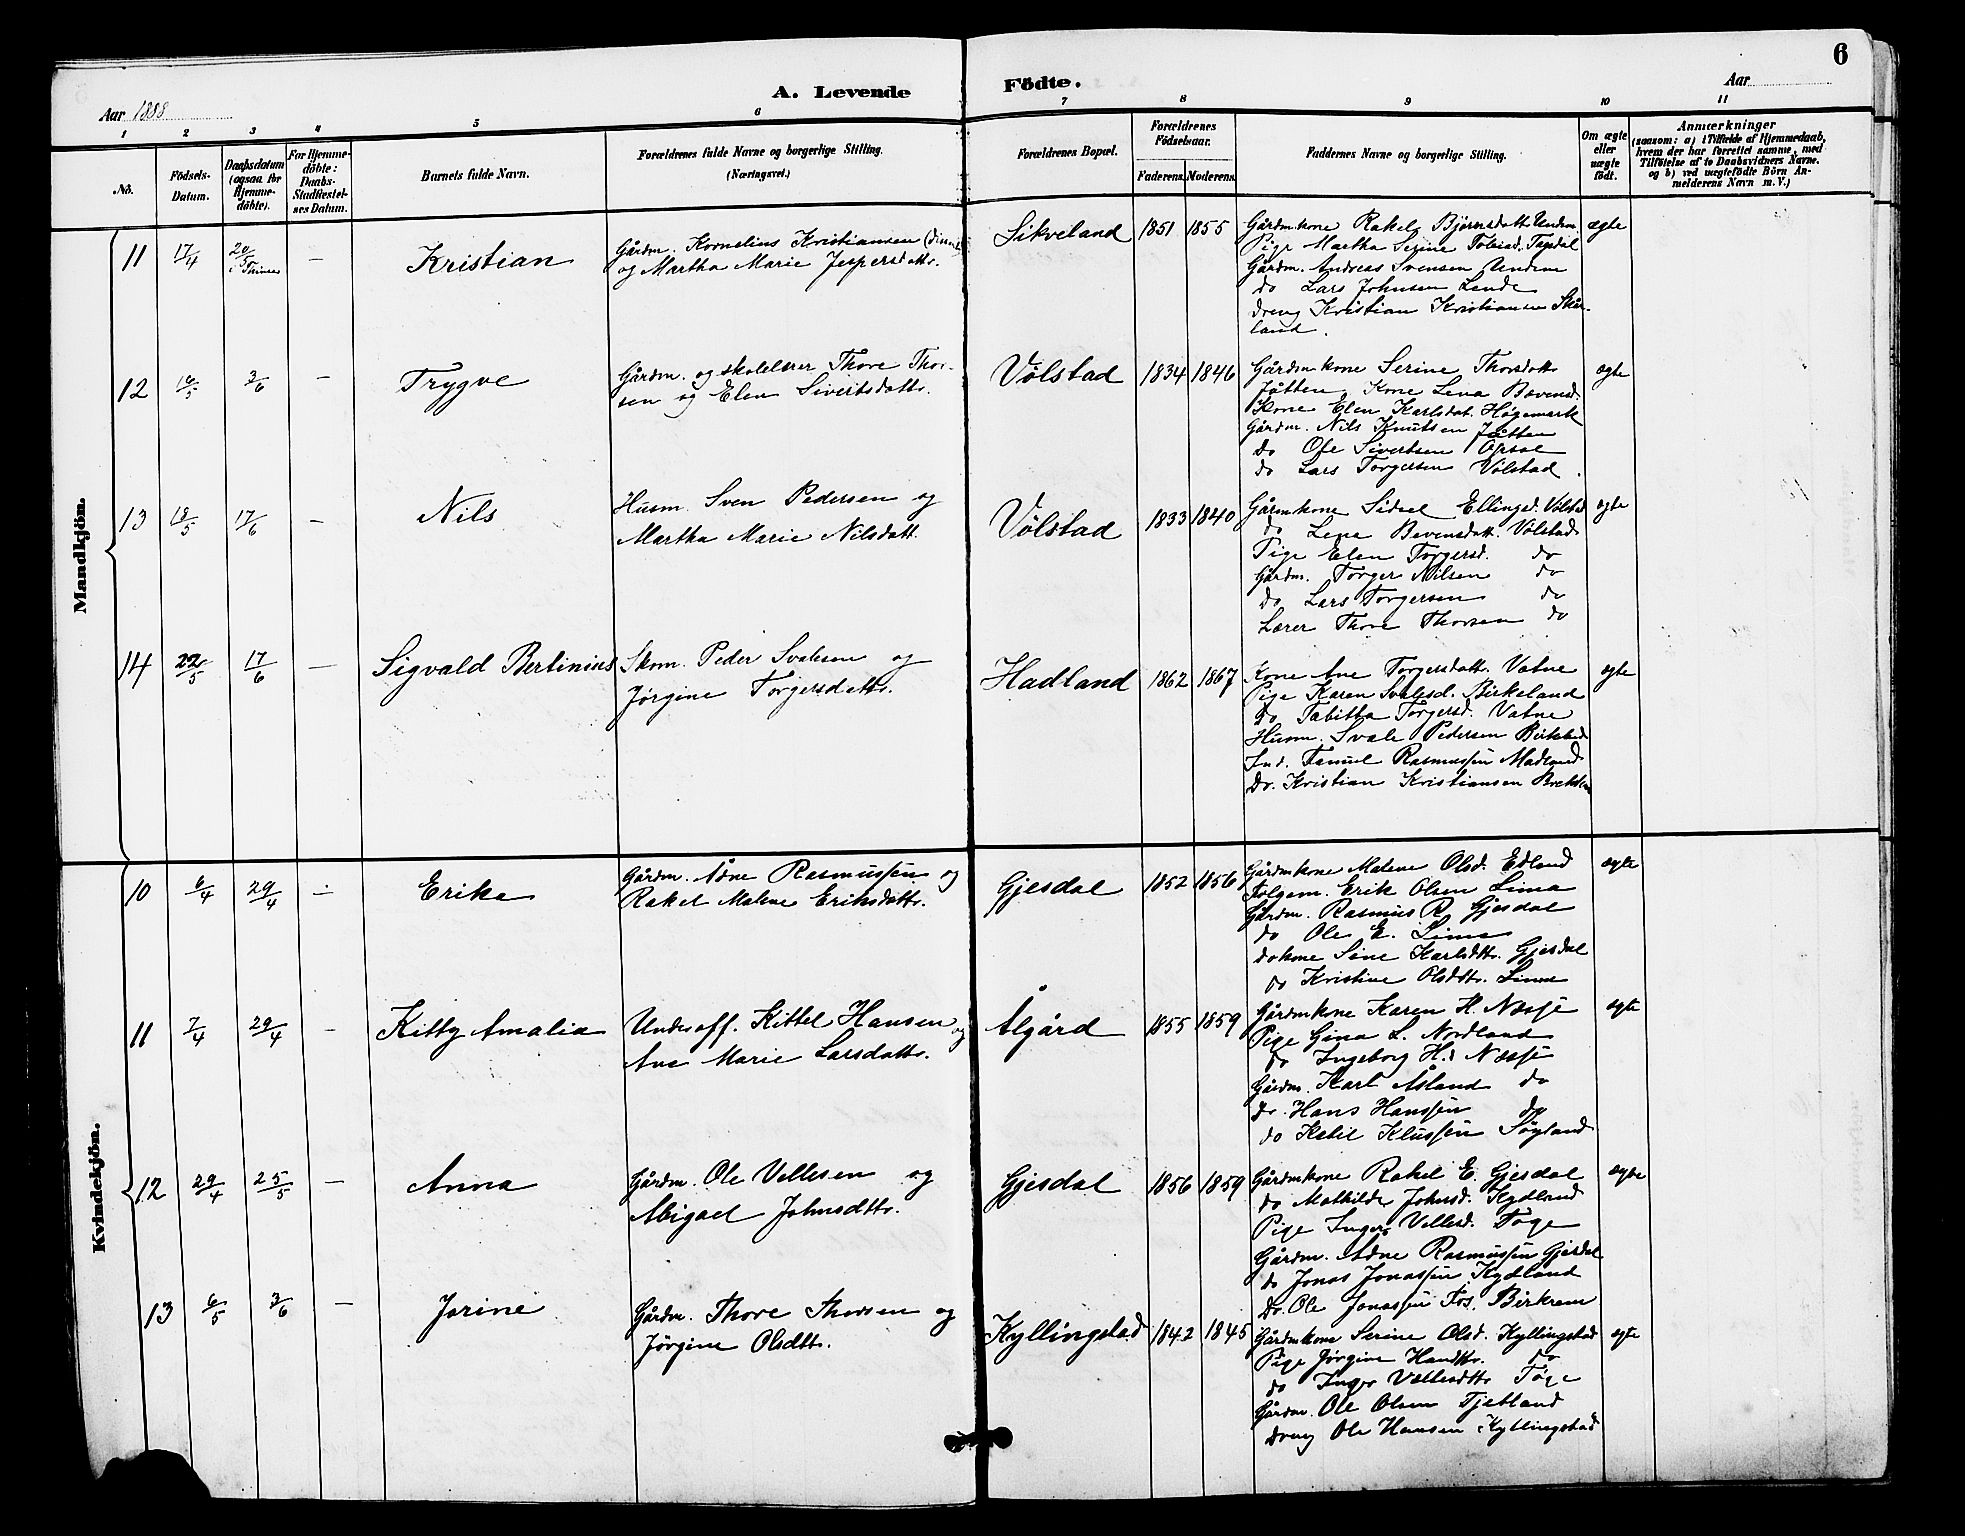 6
A. Levende Födte.
Aar 1888
Aar
1 2 3 4 5 6 7 8 9 10 11
No.
Födsels-Datum.
Daabsdatum (ogsaa for Hjemme-döbte).
For Hjemme-döbte: Daabs-Stadfæstel-ses Datum.
Barnets fulde Navn.
Forældrenes fulde Navne og borgerlige Stilling. (Næringsvei.)
Forældrenes Bopæl.
Forældrenes Födselsaar.
Faderens. Moderens.
Faddernes Navne og borgerlige Stilling.
Om ægte eller uægte födt.
Anmærkninger
(saasom: a) i Tilfælde af Hjemmedaab, hvem der har forrettet samme, med Tilföielse af to Daabsvidners Navne. og b) ved uægtefödte Börn An-melderens Navn m. V.)
Mandkjön.
11 17/4 20/5 i Thime — Kristian
Gårdm. Kornelius Kristiansen
og Martha Marie Jespersdattr.
Sikveland 1851 1855
Gårdmkone Rakel Bjørnsdatt Undem
Pige Martha Serine Tobiasd.
Gårdm. Andreas Svensen Undem
do Lars Johnsen Lende
dreng Kristian Kristiansen Skår-
land.
ægte
12 16/5 3/6 — Trygve
Gårdm. og skolelærer Thore Thor-
sen og Elen Sivertsdattr.
Vølstad 1834 1846
Gårdmkone Serine Thorsdattr
Jåtten, Kone Lena Bevensd.
Kone Elen Karlsdat. Høgemark
Gårdm. Nils Knutsen Jåtten
do Ole Sivertsen Opsal
do Lars Torgersen Vølstad.
ægte
13 18/5 17/6 — Nils
Husm. Sven Pedersen og
Martha Marie Nilsdatt.
Vølstad 1833 1840
Gårmkone Sidsel Ellingsd. Vølstad
do Lena Bevensdatt. Vølstad
Pige Elen Torgersd. do
Gårdm. Torger Nilsen do
do Lars Torgersen do
Lærer Thore Thorsen do
ægte
14 22/5 17/6 — Sigvald Bertinius
Skom. Peder Svalesen og
Jørgine Torgersdattr.
Hadland 1862 1867
Kone Ane Torgersdatt. Vatne
Pige Karen Svalesd. Birkeland
do Tabitha Torgersd. Vatne
Husm. Svale Pedersen
Ind. Samuel Rasmussen Madland
Dr. Kristian Kristiansen
ægte
Kvindekjön.
10 6/4 29/4 — Erika
Gårdm. Ådne Rasmussen og
Rakel Malene Eriksdattr.
Gjesdal 1852 1856
Gårdmkone Malene Olsd. Edland
Følgem. Erik Olsen Lima
Gårdm. Rasmus R. Gjesdal
do Ole E. Lima
dokone Sine Karlsdtr. Gjesdal
do Kristine Olsdtr. Lima
ægte
11 7/4 29/4 — Kitty Amalia
Underoff. Kittel Hansen og
Ane Marie Larsdattr.
Ålgård 1855 1859
Gårdmkone Karen H. Næsje
Pige Gina L. Nordland
do Ingeborg H. Næsje
Gårdm. Karl Åsland do
Dr. Hans Hanssen do
do Ketil Klussen Søyland
ægte
12 29/4 25/5 — Anna
Gårdm. Ole Vellesen og
Abigael Johnsdttr.
Gjesdal 1856 1859
Gårdmkone Rakel E. Gjesdal
do Mathilde Johnsd. Kydland
Pige Inger Vellesd. Tøge
Gårdm. Ådne Rasmussen Gjesdal
do Jonas Jonassen Kydland
Dr. Ole Jonassen Birkrem
ægte
13 6/5 3/6 — Jorine
Gårdm. Thore Thorsen og
Jørgine Olsdttr.
Kyllingstad 1842 1845
Gårdmkone Serine Olsd. Kyllingstad
Pige Jørgine Hansdtr. do
do Inger Vellesdttr Tøge
Gårdm. Ole Olsen Tjetland
Dreng Ole Hansen Kyllingstad
ægte